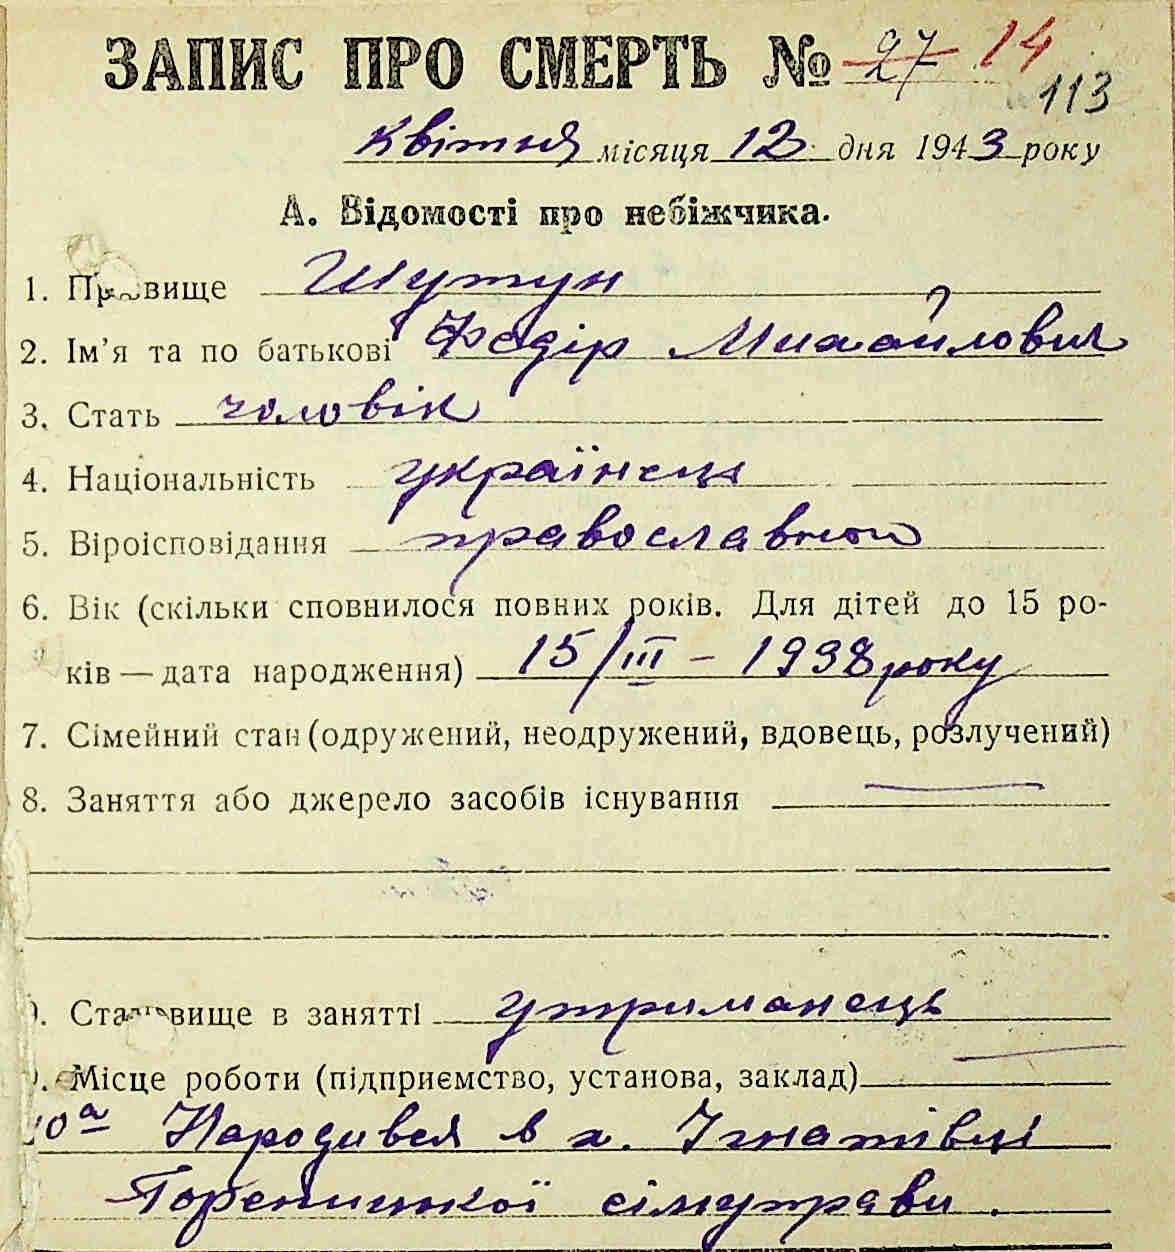 ЗАПИС ПРО СМЕРТЬ № 27 14
113
квітня місяця 12 дня 1943 року
А. Відомості про небіжчика.
1. Прізвище Шутун
2. Ім'я та по батькові Федір Михайлович
3. Стать чоловік
4. Національність українець
5. Віроісповідання православной
6. Вік (скільки сповнилося повних років. Для дітей до 15 ро-
ків — дата народження) 15/III – 1938 року
7. Сімейний стан (одружений, неодружений, вдовець, розлучений)
8. Заняття або джерело засобів існування —
9. Становище в занятті утриманець
. Місце роботи (підприємство, установа, заклад) —
10а Народився в х. Ігнатівці
Гореницької сільуправи.